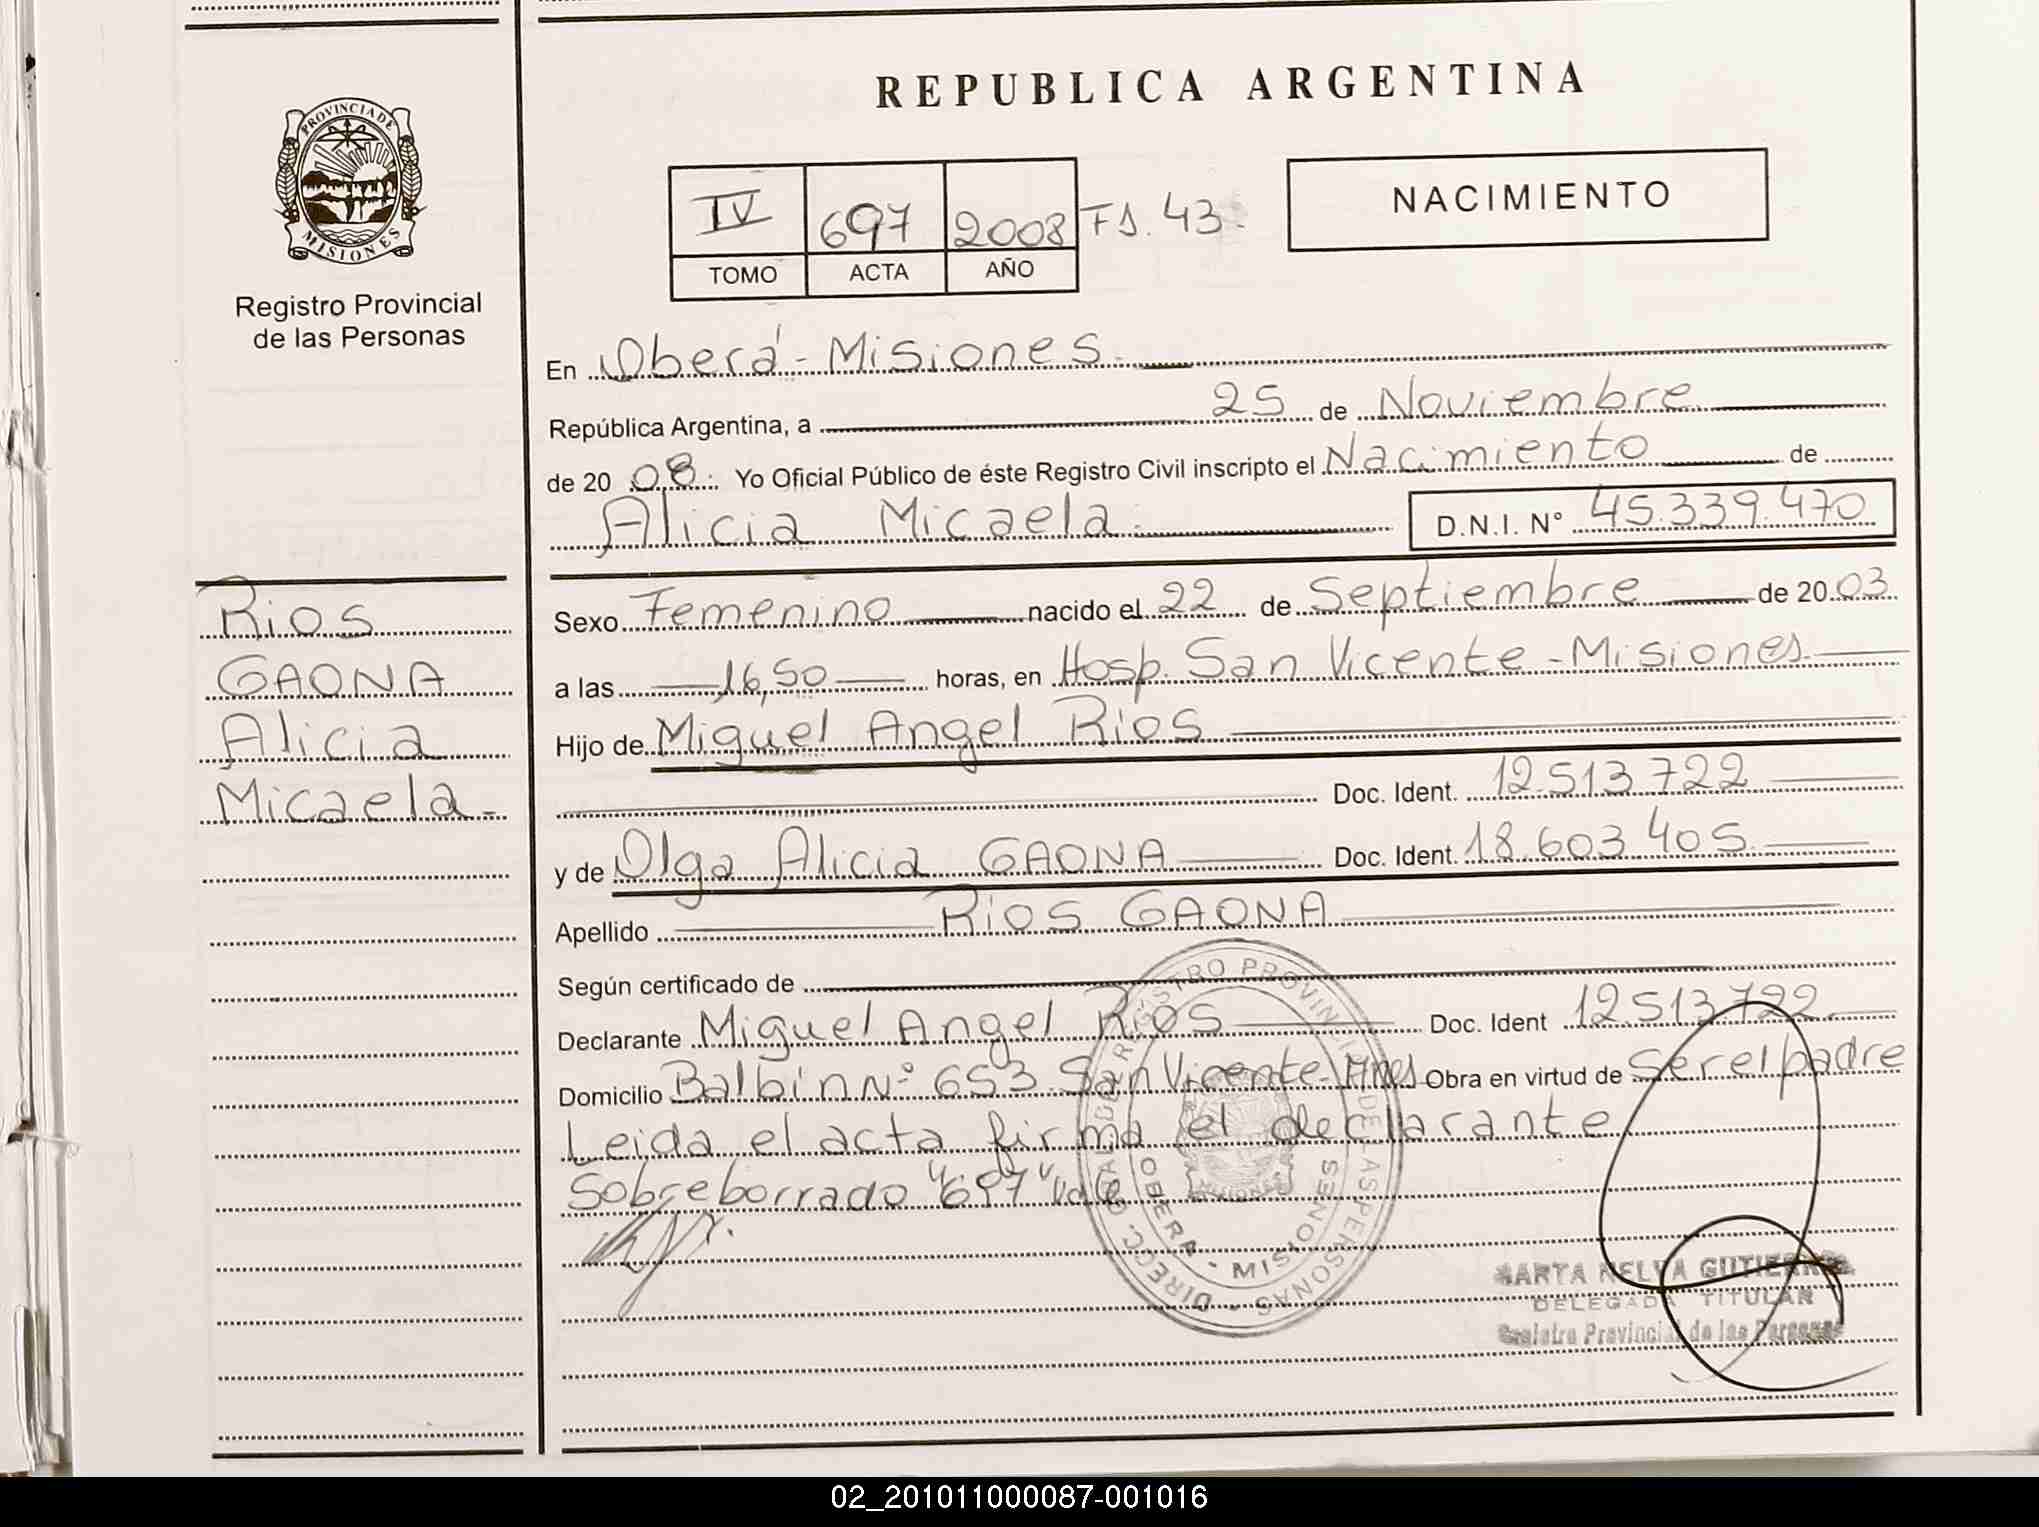 REPUBLICA ARGENTINA
PROVINCIA DE
MISIONES
Registro Provincial
de las Personas
IV 697 2008 Fº. 43.
TOMO ACTA AÑO
NACIMIENTO
En Oberá - Misiones.
República Argentina, a 25 de Noviembre
de 20 08. Yo Oficial Público de éste Registro Civil inscripto el Nacimiento de
Alicia Micaela. D.N.I. Nº 45.339.470
Rios
GAONA
Alicia
Micaela.-
Sexo Femenino nacido el 22 de Septiembre de 20 03
a las 16,50 horas, en Hosp. San Vicente - Misiones.
Hijo de Miguel Angel Rios
Doc. Ident. 12.513.722
y de Olga Alicia GAONA Doc. Ident. 18.603.405.
Apellido Rios GAONA
Según certificado de
Declarante Miguel Angel Rios Doc. Ident 12.513.722.
Domicilio Balbin Nº 653 San Vicente - Mnes Obra en virtud de ser el padre
Leida el acta firma el declarante
Sobreborrado "697" Vale
DIRECC. GRAL. DE REGISTRO PROVINCIAL DE LAS PERSONAS
OBERA - MISIONES
MISIONES
SARTA NELVA GUTIERREZ
DELEGADA TITULAR
Registro Provincial de las Personas
02_201011000087-001016